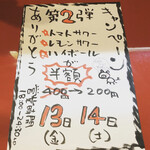 キャンペーン
第2弾
ありがとう
トマトサワー
レモンサワー
ハイボール
が
半額
400→200円
13日14日
(金)(土)
営業時間